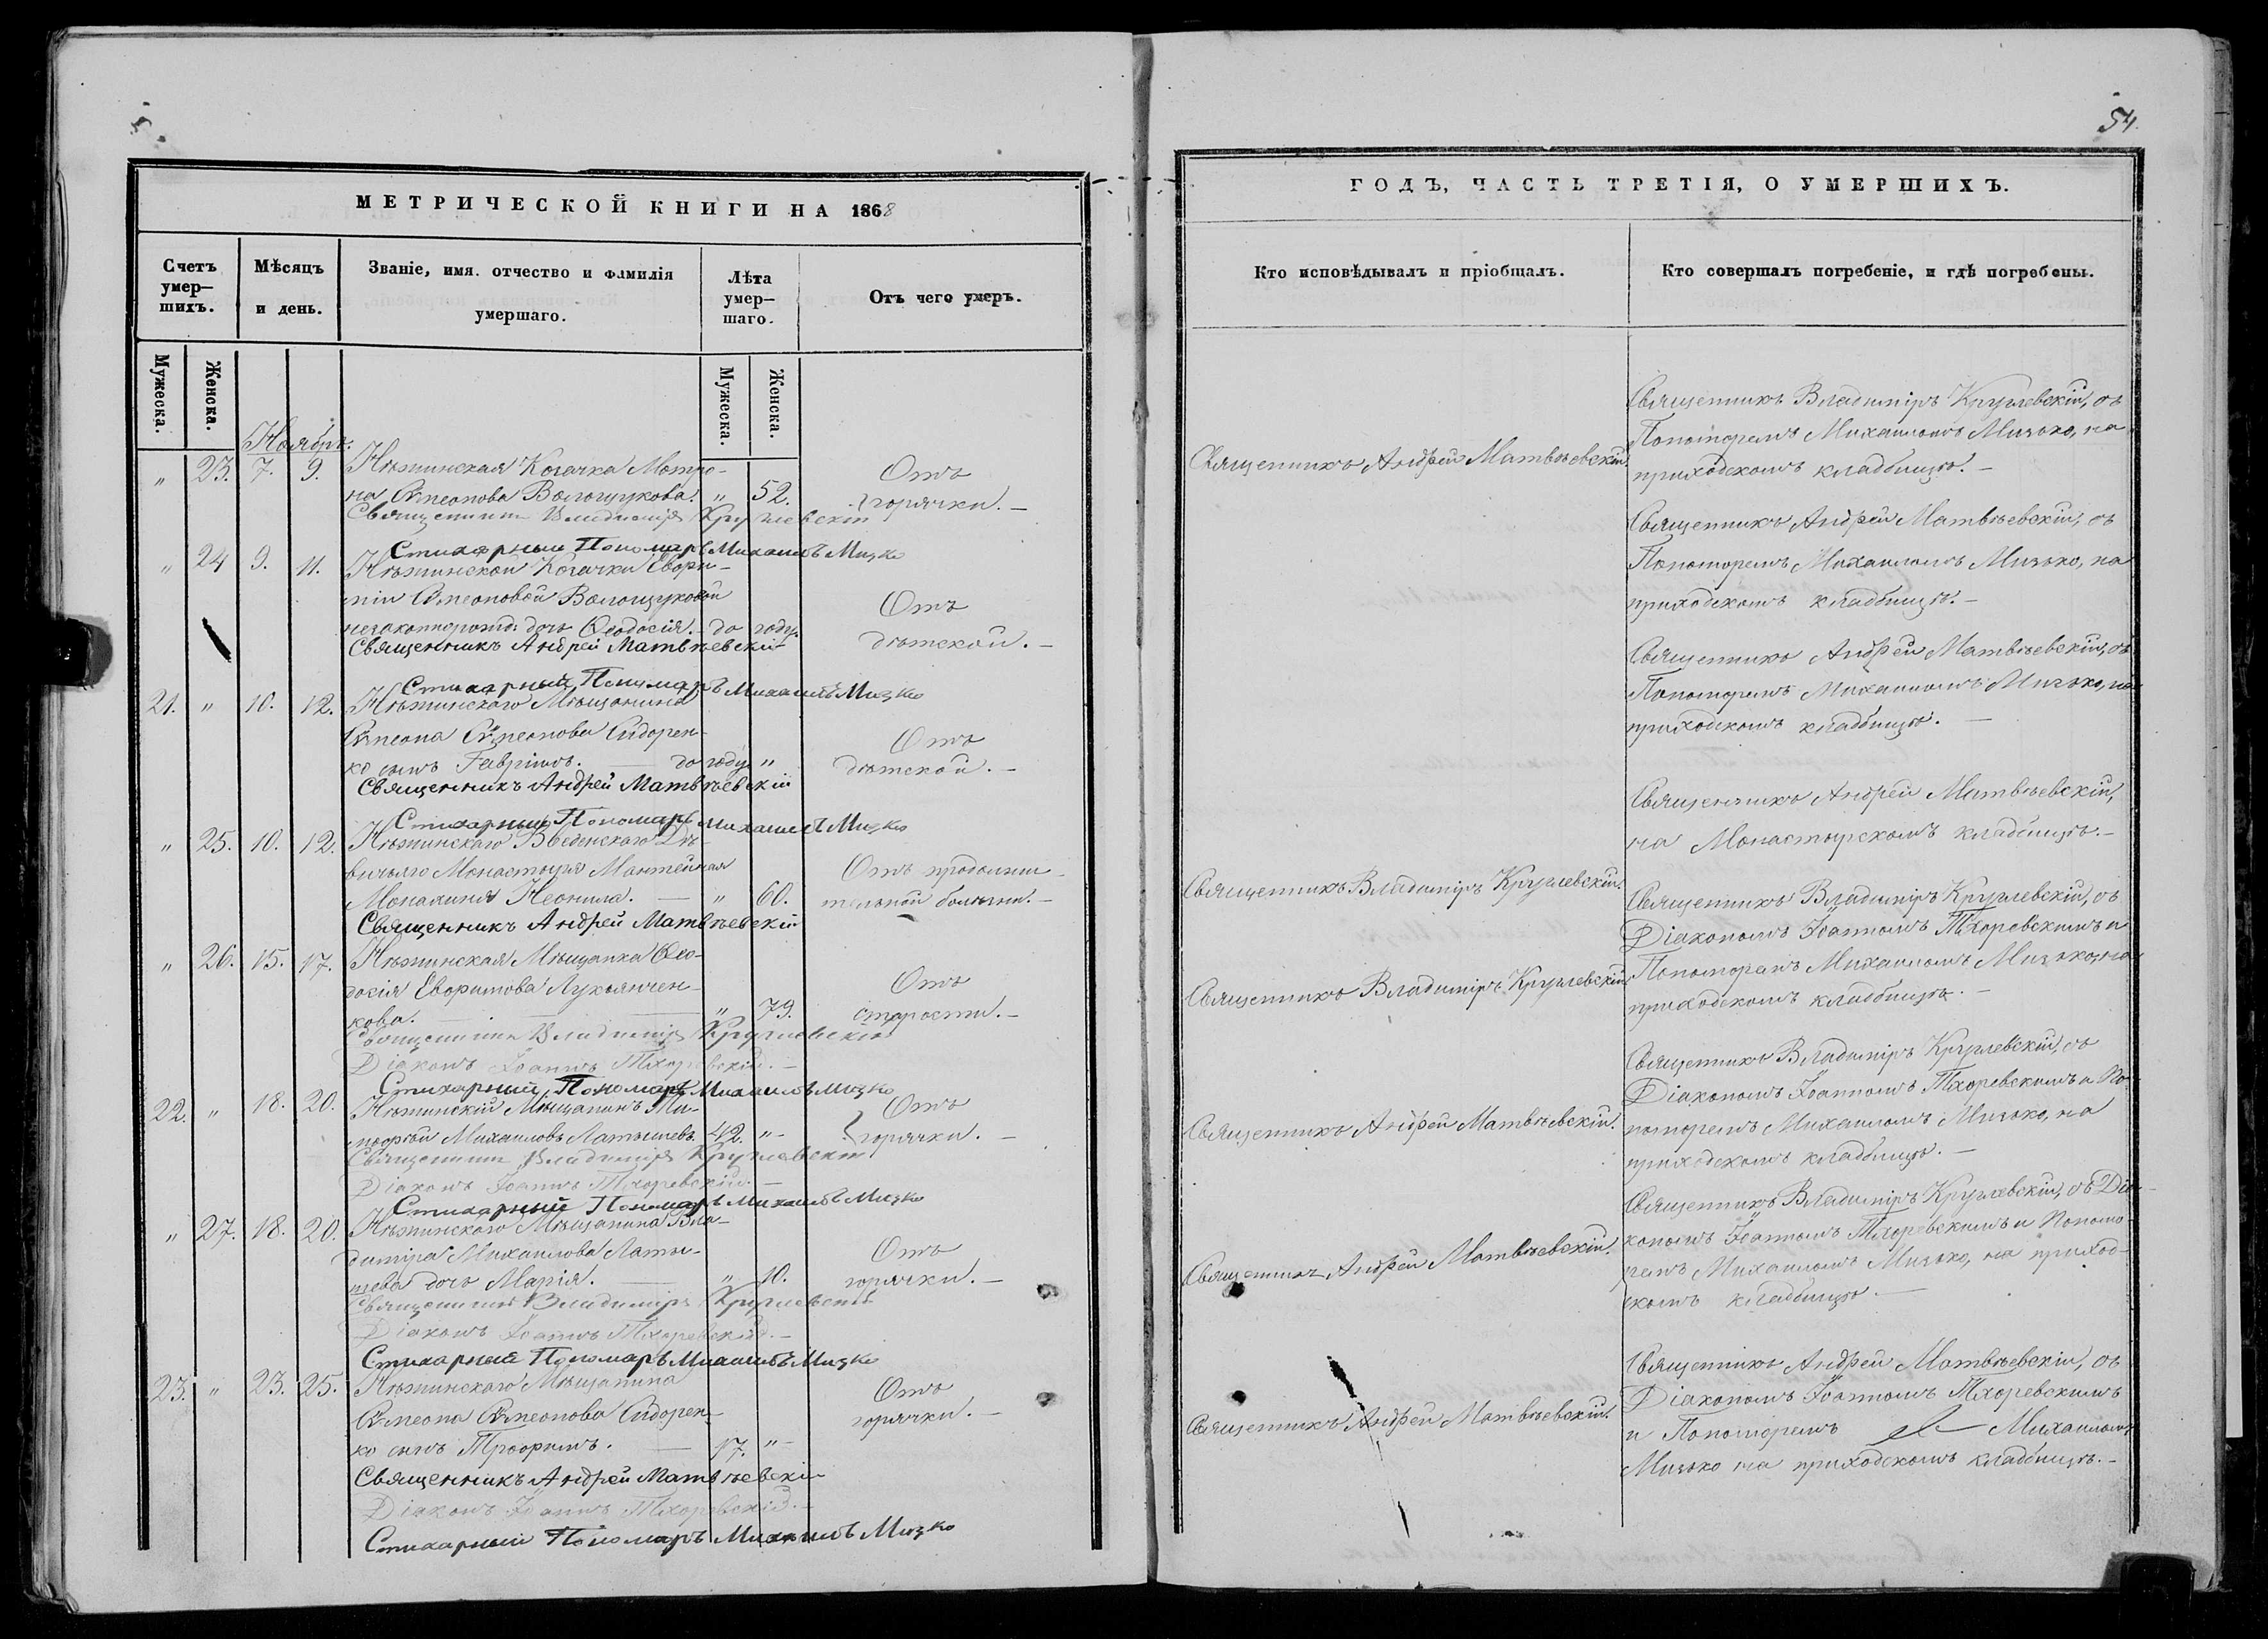 54.
МЕТРИЧЕСКОЙ КНИГИ НА 1868
Счетъ умер—шихъ.
Мѣсяцъ и день.
Званіе, имя. отчество и фамилія умершаго.
Лѣта умер—шаго.
Отъ чего умеръ.
Мужеска.
Женска.
Мужеска.
Женска.
Ноябрь.
" 23. 7. 9. Нѣжинская Козачка Матро-
на Сѵмеонова Волощукова. " 52. Отъ горячки.
Священникъ Владиміръ Круглевскій
Стихарный Пономарь Михаилъ Мизко
" 24 9. 11. Нѣжинской Козачки Евфи-
міи Сѵмеоновой Волощуковой
незаконнорожд. дочь Ѳеодосія. до году. Отъ дѣтской.
Священникъ Андрей Матвѣевскій
Стихарный Пономарь Михаилъ Мизко
21. " 10. 12. Нѣжинскаго Мѣщанина
Сѵмеона Сѵмеонова Сидорен-
ко сынъ Гавріилъ. до году " Отъ дѣтской.
Священникъ Андрей Матвѣевскій
Стихарный Пономарь Михаилъ Мизко
" 25. 10. 12. Нѣжинскаго Введенскаго Дѣ-
вичьяго Монастыря Мантейная
Монахиня Неонила. " 60. Отъ продолжи-
тельной болѣзни.
Священникъ Андрей Матвѣевскій
" 26. 15. 17. Нѣжинская Мѣщанка Ѳео-
досія Евфимова Лукьянчен-
кова. " 79. Отъ старости.
Священникъ Владиміръ Круглевскій
Діаконъ Іоаннъ Тхоревскій.
Стихарный Пономарь Михаилъ Мизко
22. " 18. 20. Нѣжинскій Мѣщанинъ Ти-
моѳей Михаиловъ Латышевъ. 42. " Отъ горячки.
Священникъ Владиміръ Круглевскій
Діаконъ Іоаннъ Тхоревскій.
Стихарный Пономарь Михаилъ Мизко
" 27. 18. 20. Нѣжинскаго Мѣщанина Вла-
диміра Михаилова Латы-
шева дочь Марія. " 10. Отъ горячки.
Священникъ Владиміръ Круглевскій
Діаконъ Іоаннъ Тхоревскій.
Стихарный Пономарь Михаилъ Мизко
23. " 23. 25. Нѣжинскаго Мѣщанина
Сѵмеона Сѵмеонова Сидорен-
ко сынъ Трофимъ. 17. " Отъ горячки.
Священникъ Андрей Матвѣевскій
Діаконъ Іоаннъ Тхоревскій.
Стихарный Пономарь Михаилъ Мизко
ГОДЪ, ЧАСТЬ ТРЕТІЯ, О УМЕРШИХЪ.
Кто исповѣдывалъ и пріобщалъ.
Кто совершалъ погребеніе, и гдѣ погребены.
Священникъ Андрей Матвѣевскій.
Священникъ Владиміръ Круглевскій, съ
Пономаремъ Михаиломъ Мизько, на
приходскомъ кладбищѣ.
Священникъ Андрей Матвѣевскій, съ
Пономаремъ Михаиломъ Мизько, на
приходскомъ кладбищѣ.
Священникъ Андрей Матвѣевскій, съ
Пономаремъ Михаиломъ Мизько, на
приходскомъ кладбищѣ.
Священникъ Владиміръ Круглевскій.
Священникъ Андрей Матвѣевскій,
на Монастырскомъ кладбищѣ.
Священникъ Владиміръ Круглевскій
Священникъ Владиміръ Круглевскій, съ
Діакономъ Іоанномъ Тхоревскимъ и
Пономаремъ Михаиломъ Мизько, на
приходскомъ кладбищѣ.
Священникъ Андрей Матвѣевскій.
Священникъ Владиміръ Круглевскій, съ
Діакономъ Іоанномъ Тхоревскимъ и По-
номаремъ Михаиломъ Мизько, на
приходскомъ кладбищѣ.
Священникъ Андрей Матвѣевскій.
Священникъ Владиміръ Круглевскій, съ Діа-
кономъ Іоанномъ Тхоревскимъ и Понома-
ремъ Михаиломъ Мизько, на приход-
скомъ кладбищѣ.
Священникъ Андрей Матвѣевскій.
Священникъ Андрей Матвѣевскій, съ
Діакономъ Іоанномъ Тхоревскимъ
и Пономаремъ Михаиломъ
Мизько на приходскомъ кладбищѣ.